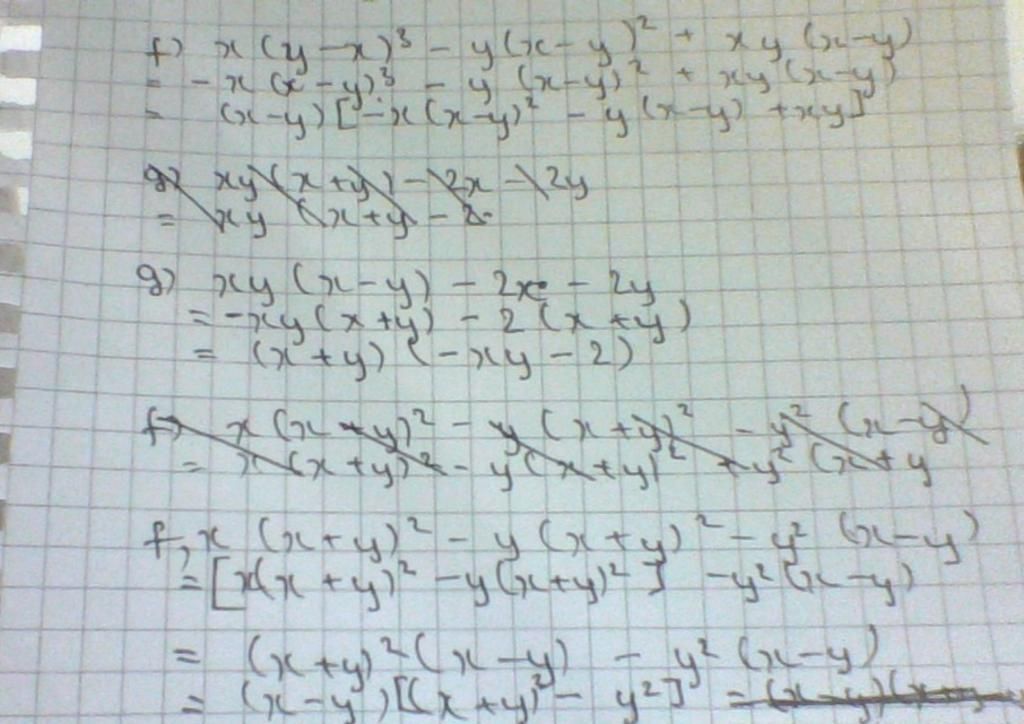 f) x(y-x)³ - y(x-y)² + xy(x-y)
= -x(x-y)³ - y(x-y)² + xy(x-y)
= (x-y)[-x(x-y)² - y(x-y) + xy]
g) xy(x+y) - 2x - 2y
= xy(x+y - 2
g) xy(x-y) - 2x - 2y
= -xy(x+y) - 2(x+y)
= (x+y)(-xy-2)
f) x(x+y)² - y(x+y)² - y²(x-y)
= x(x+y)² - y(x+y)² + y²(x+y
f, x(x+y)² - y(x+y)² - y²(x-y)
= [x(x+y)² - y(x+y)²] - y²(x-y)
= (x+y)²(x-y) - y²(x-y)
= (x-y)[(x+y)² - y²] = (x-y)(x+y